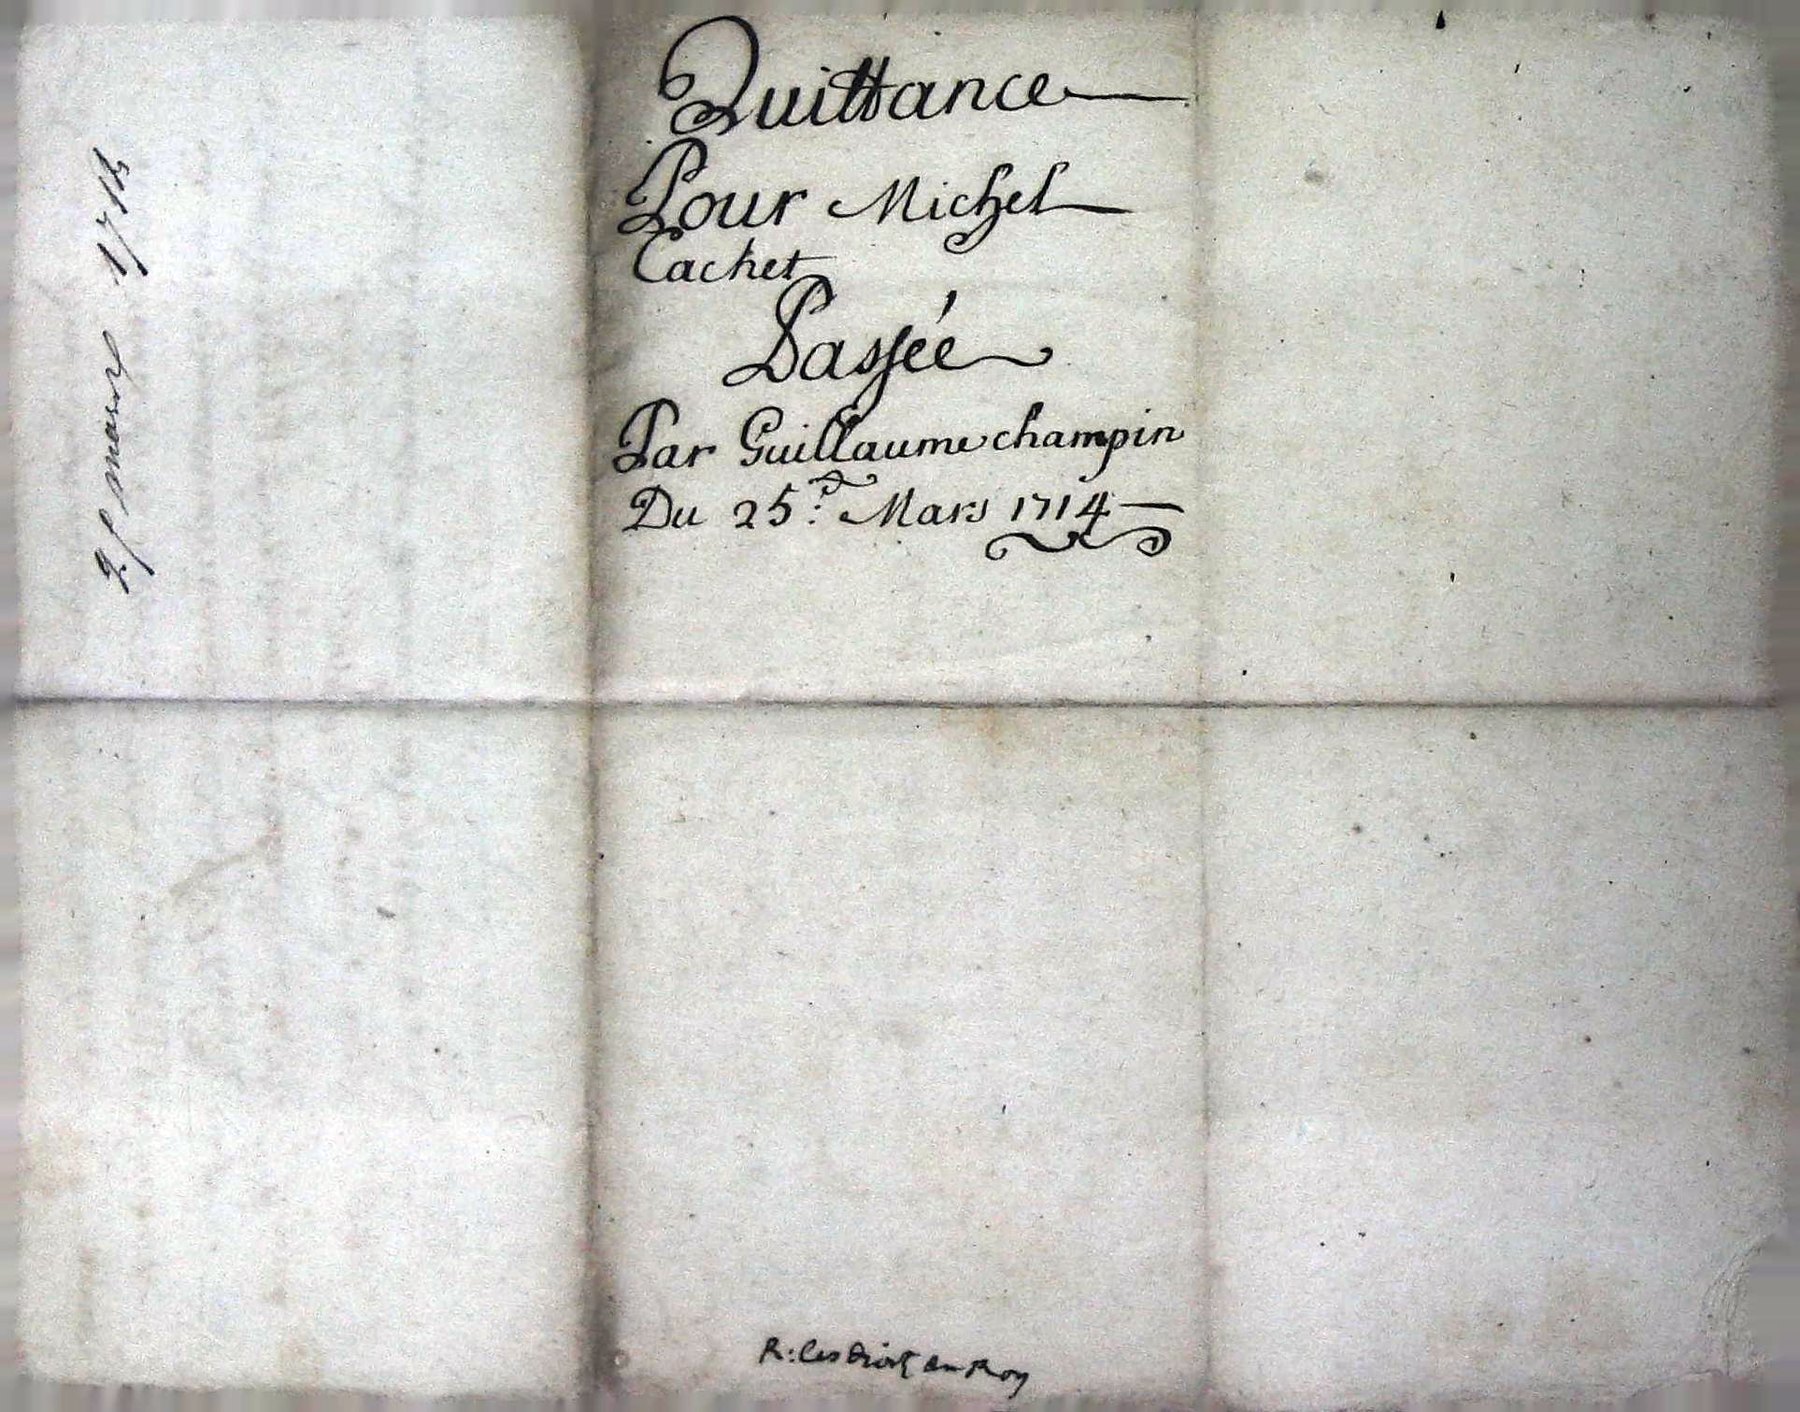 25 mars 1714
Quittance
Pour Michel
Cachet
Passée
Par Guillaume champin
Du 25.e Mars 1714
R: les droit du Roy